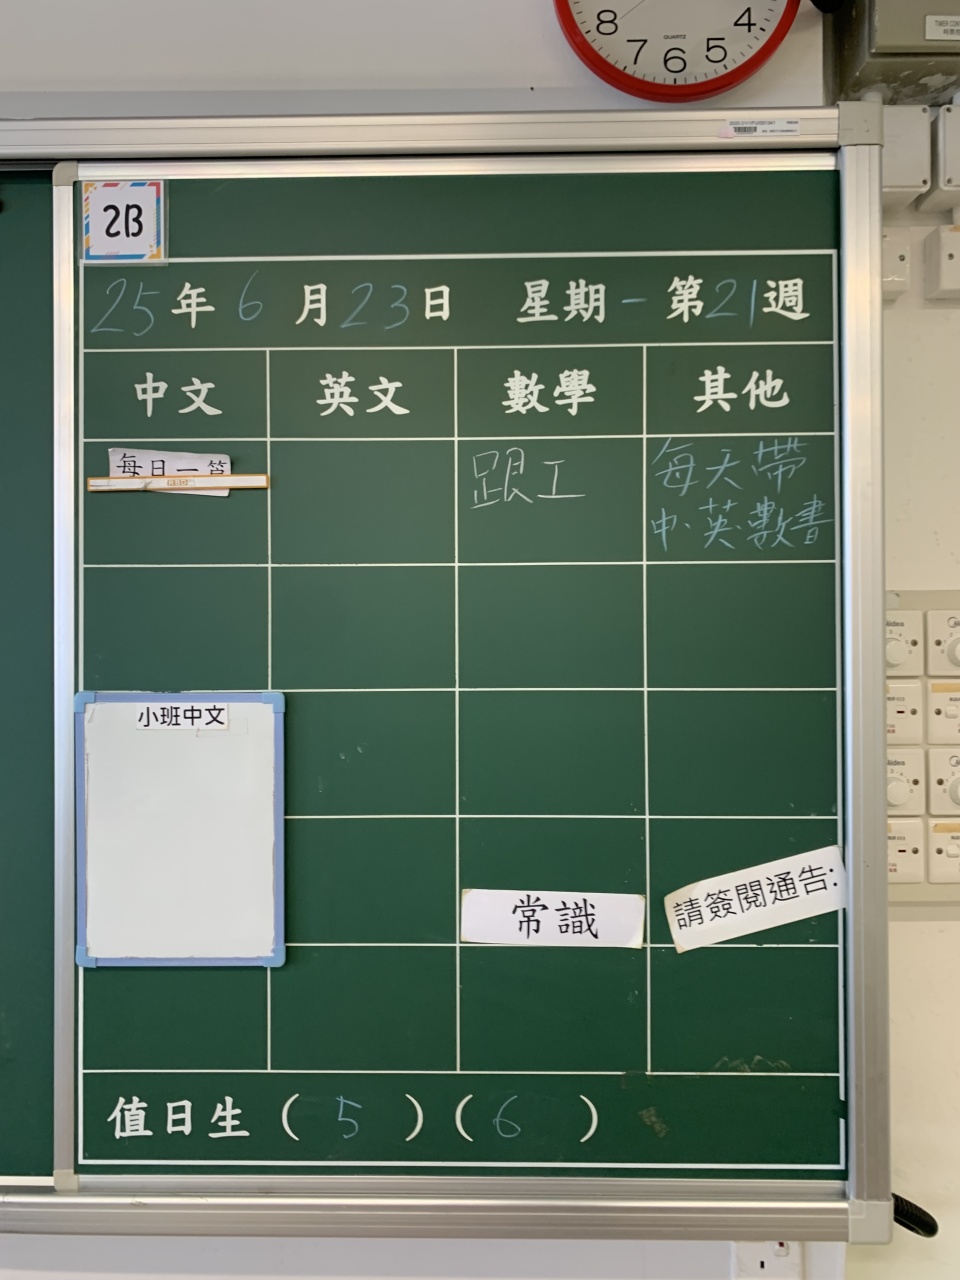 8 7 6 5 4
QUARTZ
2B
25年6月23日 星期一 第21週
中文 英文 數學 其他
每日一篇
跟工
每天帶
中、英、數書
小班中文
常識
請簽閱通告:
值日生 ( 5 ) ( 6 )